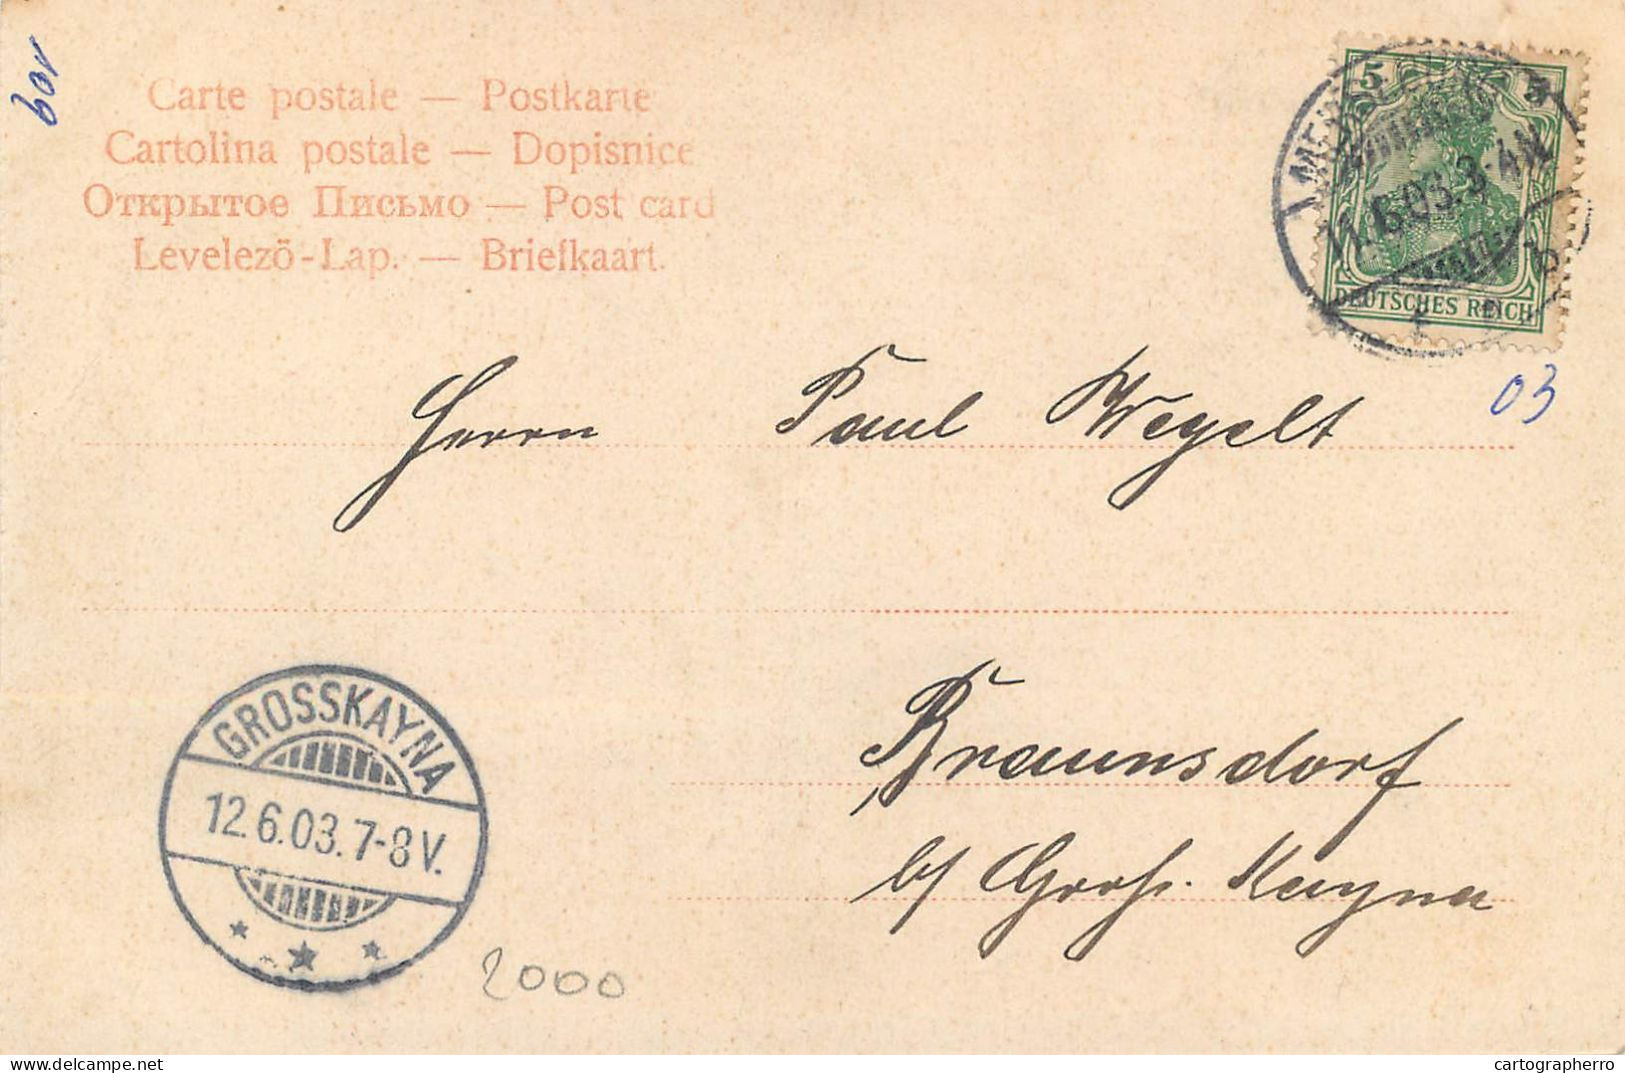 Carte postale — Postkarte
Cartolina postale — Dopisnice
Открытое Письмо — Post card
Levelezö-Lap. — Briefkaart.
5 5
11.6.03.3-4N
b
DEUTSCHES REICH
03
Herrn Paul Wegelt
Braunsdorf
b/ Groß. Kayna
GROSSKAYNA
12.6.03.7-8V.
2000
delcampe.net
cartographerro